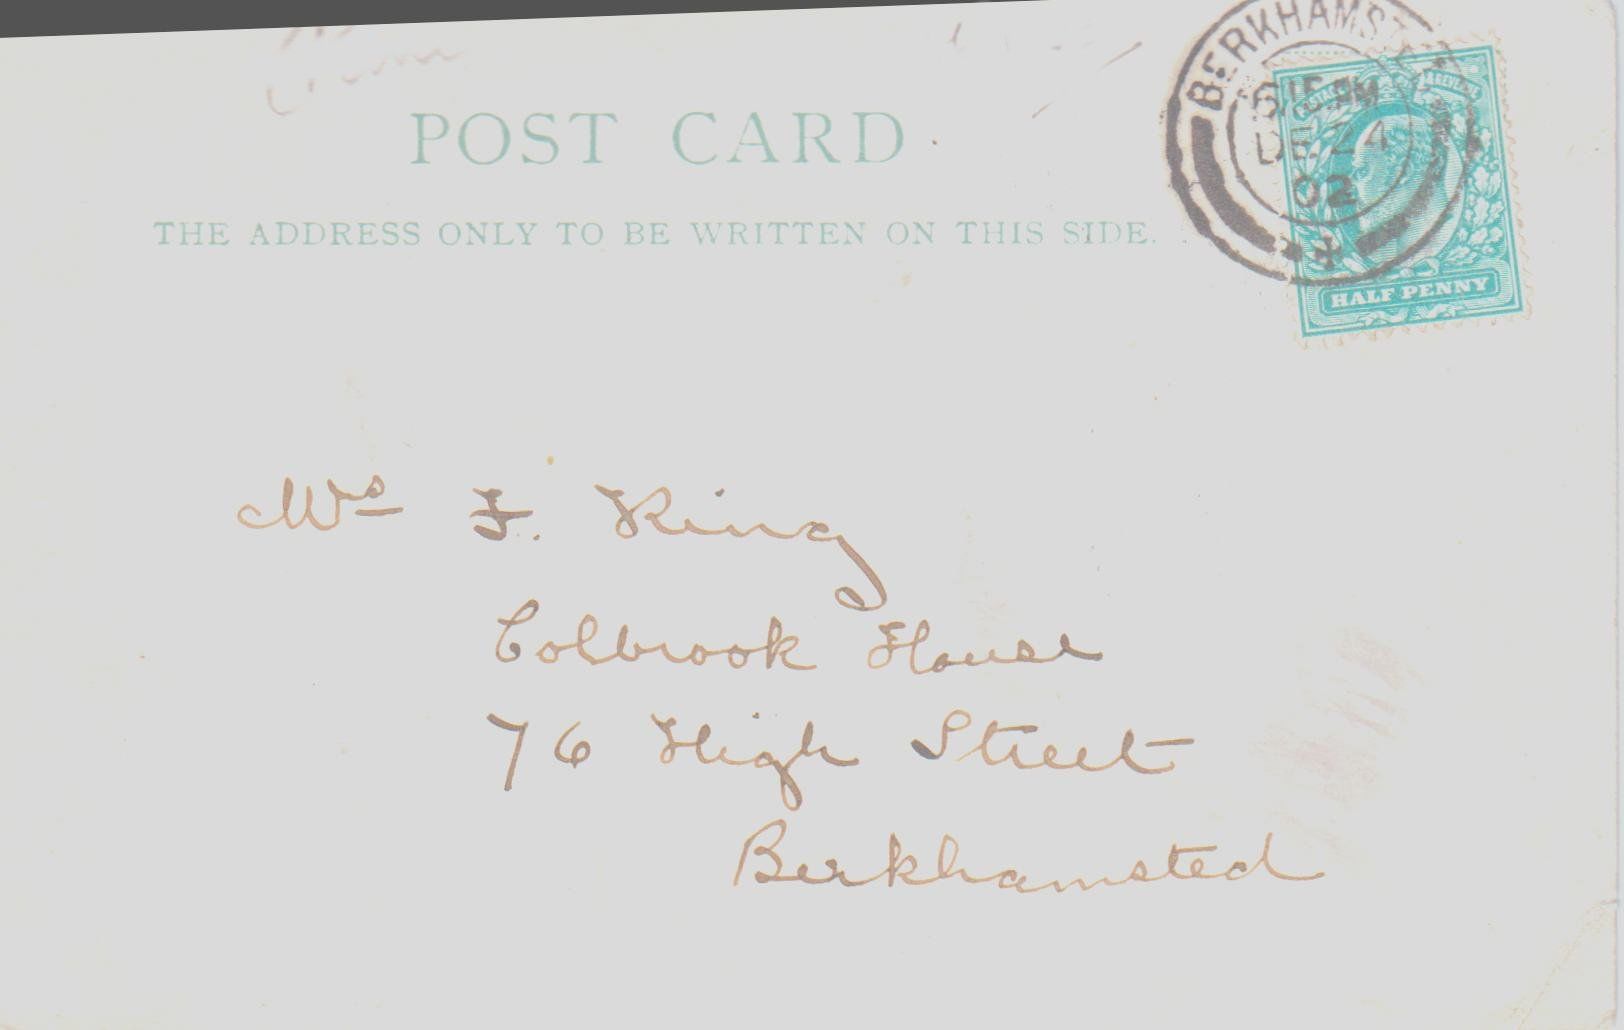 POST CARD
THE ADDRESS ONLY TO BE WRITTEN ON THIS SIDE.
BERKHAMST
6 15 PM
DE 24
02
POSTAGE & REVENUE
HALF PENNY
Mrs F. King
Colbrook House
76 High Street
Berkhamsted